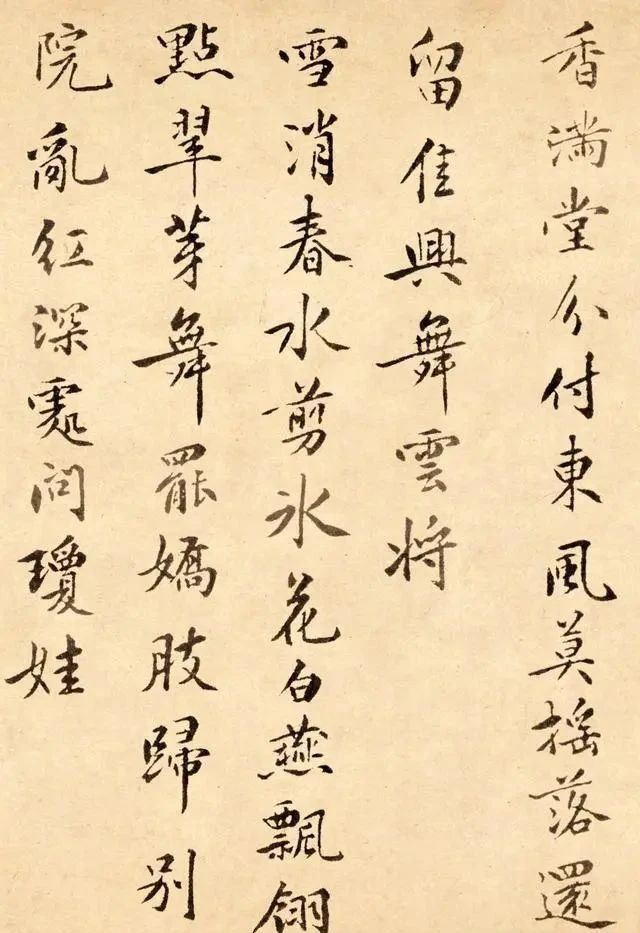 香滿堂分付東風莫摇落還
留佳興舞雲将
雪消春水剪氷花白燕飄翎
點翠芽舞罷嬌肢歸别
院亂紅深處問瓊娃